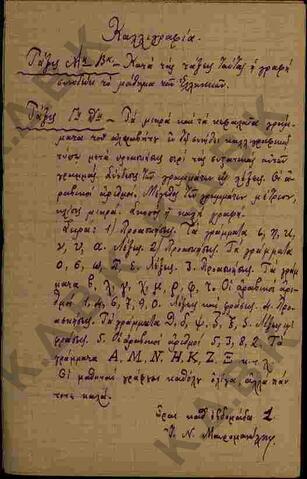 Καλλιγραφία.
Τάξις Αη Βα. – Κατὰ τὰς τάξεις ταύτας ἡ γραφὴ
συνοδεύει τὸ μάθημα τῶν Ἑλληνικῶν.
Τάξις Γη Δη – Τὰ μικρὰ καὶ τὰ κεφαλαῖα γράμ-
ματα τοῦ ἀλφαβήτου ἐν τῇ συνήθει καλλιγραφικῇ
τύπῳ μετὰ ἀσκήσεως περὶ τὰς εὐκρινεῖς αὐτῶν
γραμμάς. Σύνδεσις τῶν γραμμάτων εἰς λέξεις. Οἱ ἀ-
ραβικοὶ ἀριθμοί. Μέγεθος τῶν γραμμάτων μέτριον,
κλίσις μικρά. ἡ καλὴ γραφή.
Σειρά: 1) Προασκήσεις. Τὰ γράμματα ι, η, κ,
ν, υ, α. Λέξεις. 2) Προασκήσεις. Τὰ γράμματα
ο, σ, ω, π, ε. Λέξεις. 3. Προασκήσεις. Τὰ γράμ-
ματα λ, χ, γ, μ, ρ, φ, τ. Οἱ ἀραβικοὶ ἀρι-
θμοὶ 1, 4, 6, 7, 9, 0. Λέξεις καὶ φράσεις. 4. Προ-
ασκήσεις. Τὰ γράμματα θ, δ, ψ, β, ξ, ζ. Λέξεις καὶ
φράσεις. 5. Οἱ ἀραβικοὶ ἀριθμοὶ 5, 3, 8, 2. Τὰ
γράμματα Α, Μ, Ν, Η, Κ, Ζ, Ξ κ.τ.λ.
Οἱ μαθηταὶ γράφουσι καθόλου ὀλίγα, ἀλλὰ πάν-
τοτε καλά.
Ὧραι καθ' ἑβδομάδα 1
Ν.
Κ.Α.Β.Κ